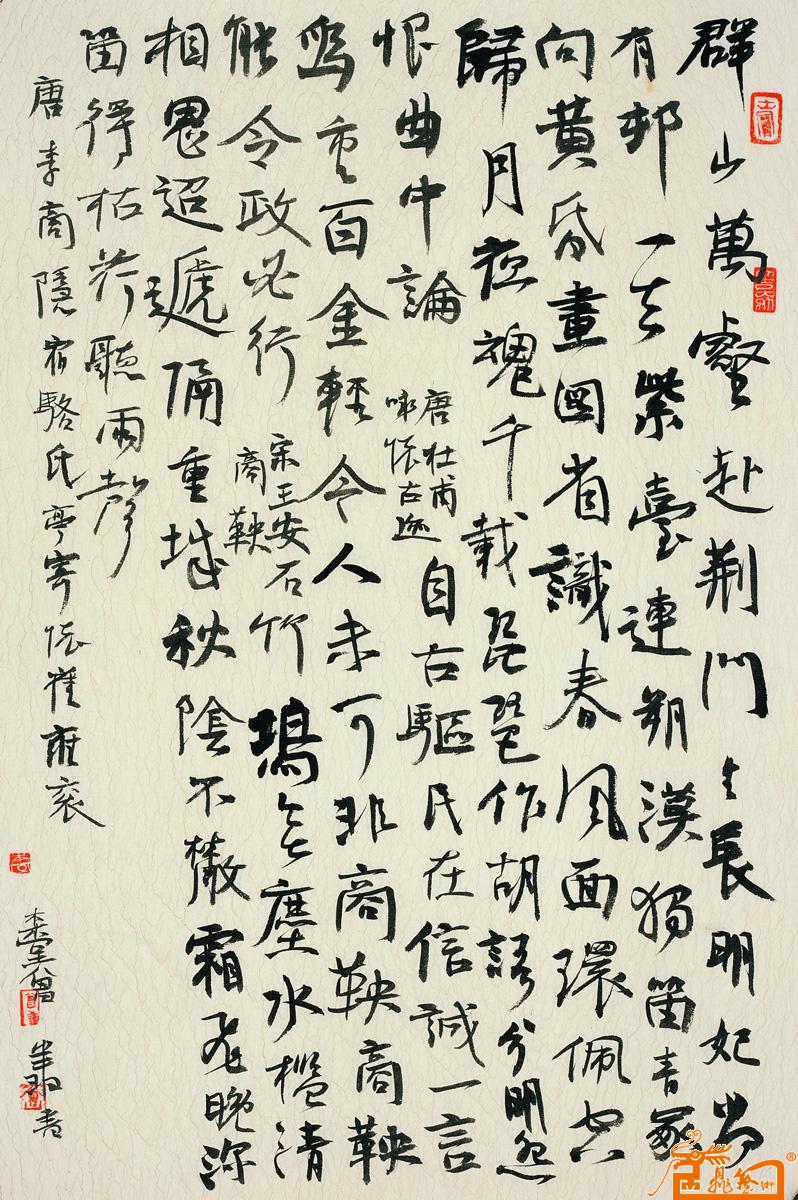 群山萬壑赴荊門生長明妃尚
有邨一去紫臺連朔漠獨留青冢
向黃昏畫圖省識春風面環佩空
歸月夜魂千載琵琶作胡語分明怨
恨曲中論
唐杜甫
咏懷古迹
自古驅民在信誠一言
為重百金輕今人未可非商鞅商鞅
能令政必行
宋王安石
商鞅
竹塢無塵水檻清
相思迢遞隔重城秋陰不散霜飛晚
留得枯荷聽雨聲
唐李商隱宿駱氏亭寄懷崔雍袞